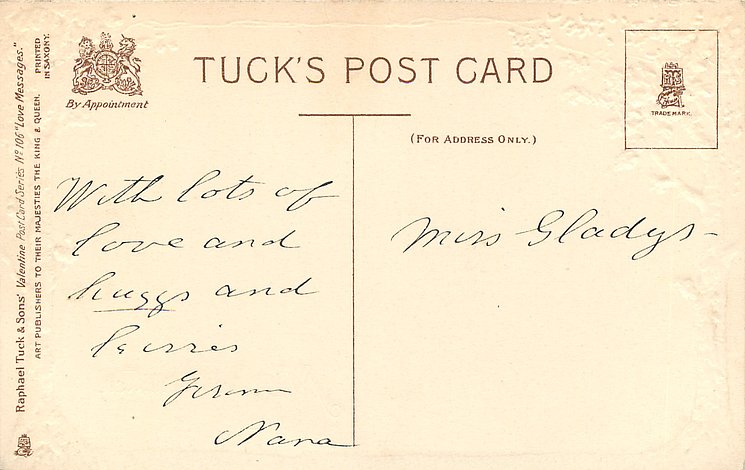 Raphael Tuck & Sons' Valentine Post Card Series No 106 "Love Messages."
ART PUBLISHERS TO THEIR MAJESTIES THE KING & QUEEN.
PRINTED
IN SAXONY.
By Appointment
TUCK'S POST CARD
(FOR ADDRESS ONLY.)
TRADE MARK.
With lots of
love and
huggs and
kisses
from
Nana
Miss Gladys